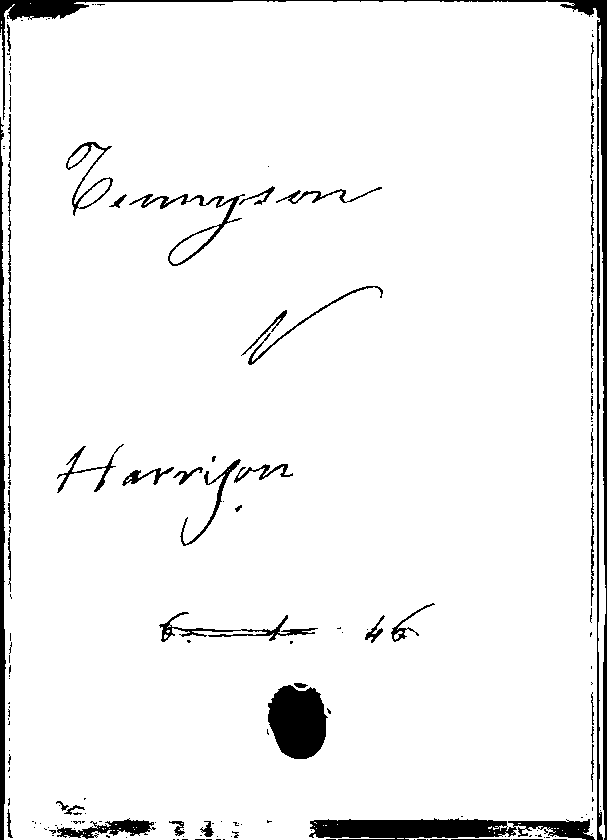 Tennyson
V
Harrison
6. 1. 46